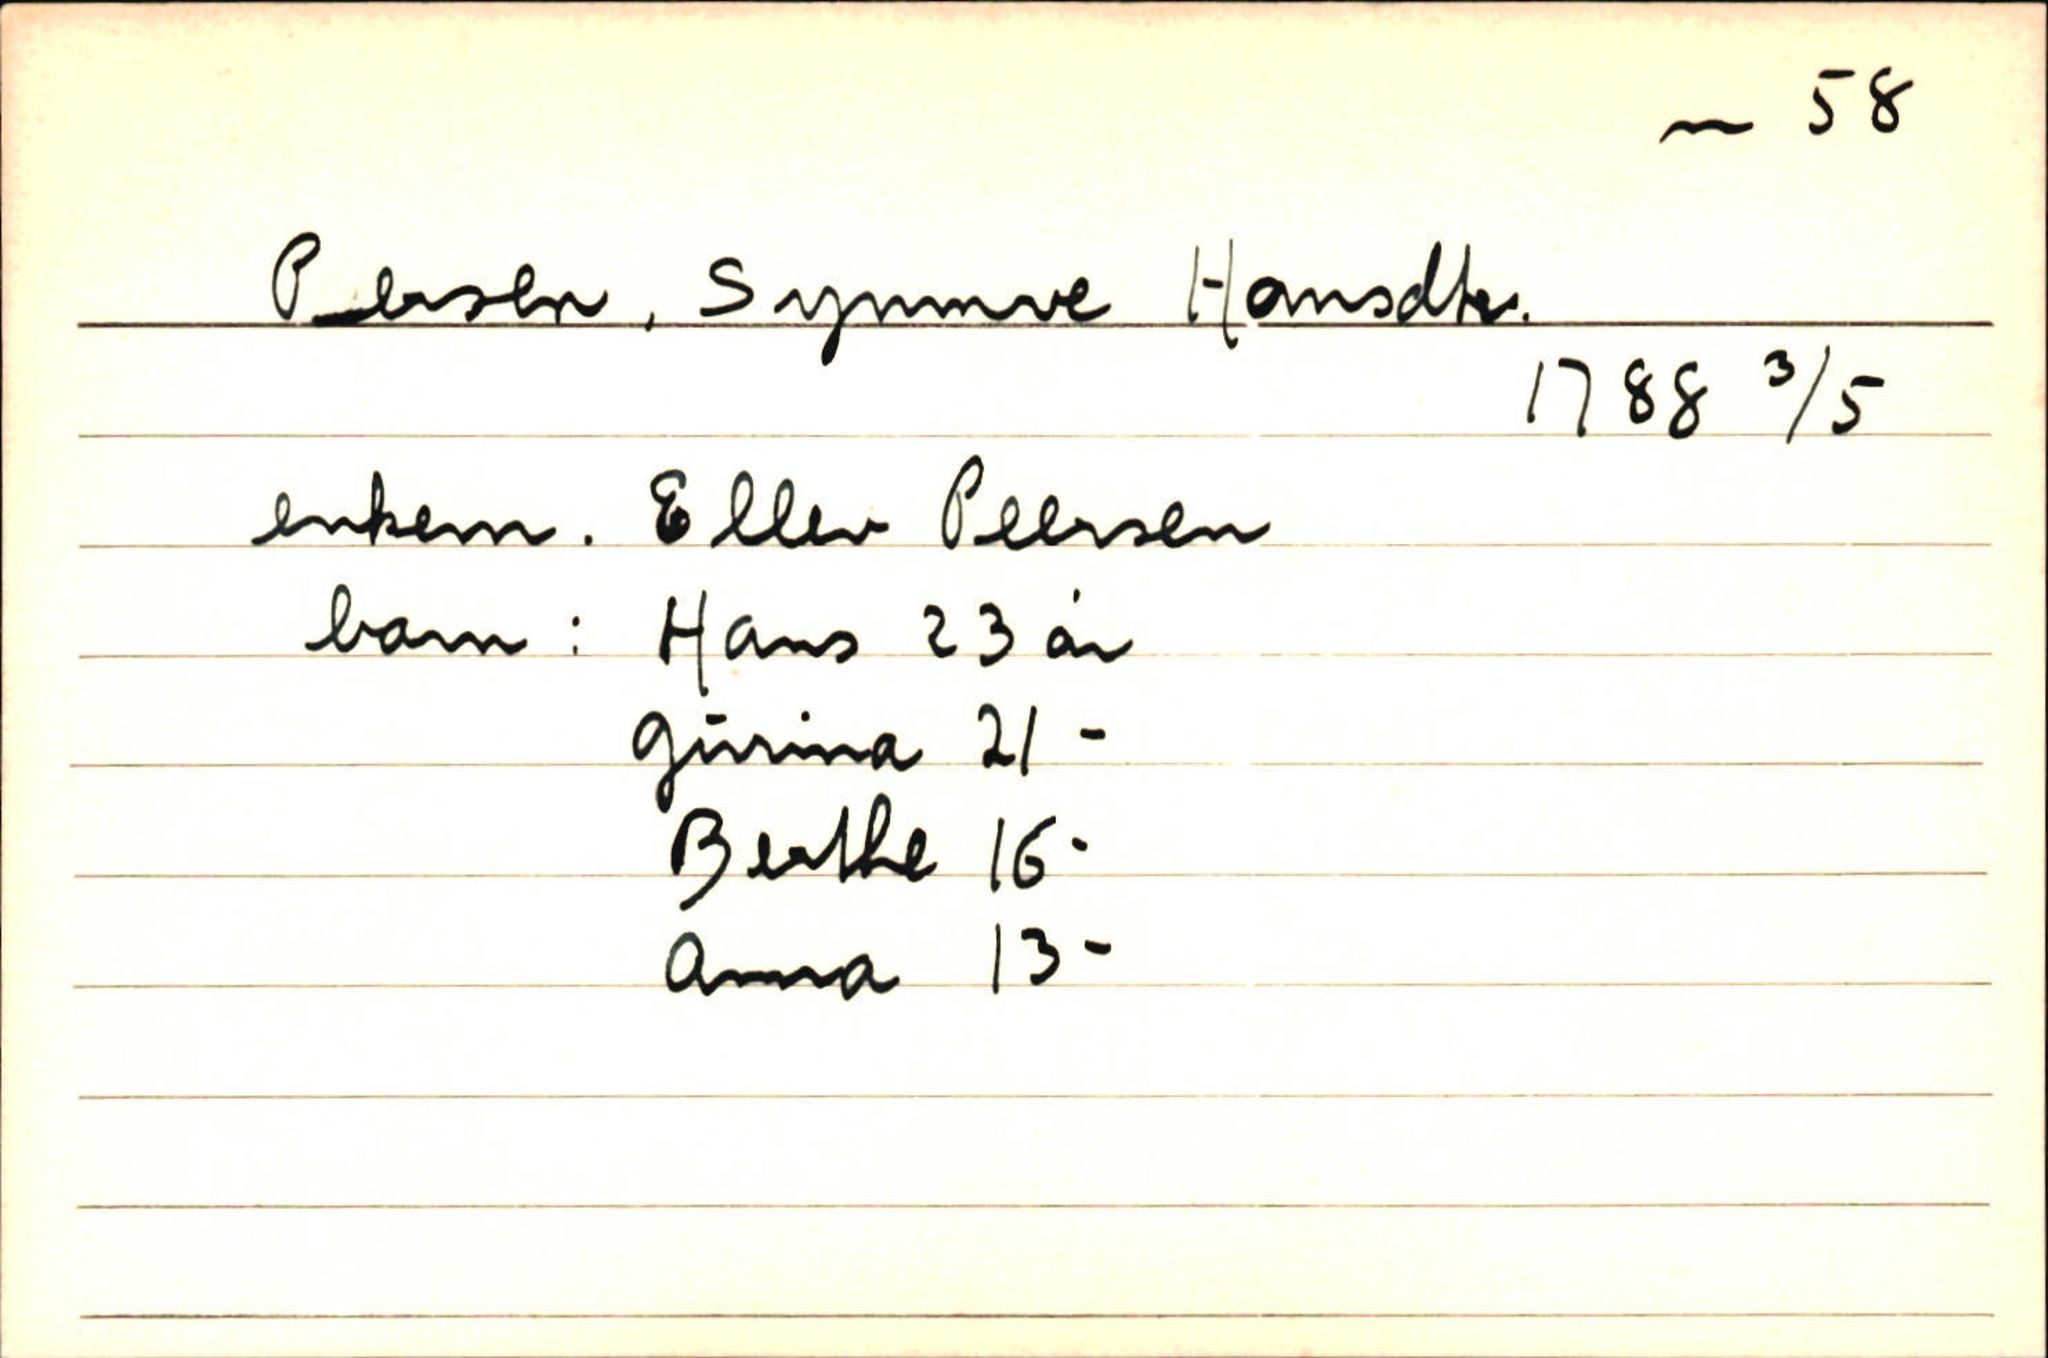 ~ 58
Persen, Synnve Hansdtr.
1788 3/5
enkem. Ellev Peersen
barn: Hans 23 år
Gurina 21 -
Berthe 16 -
Anna 13 -